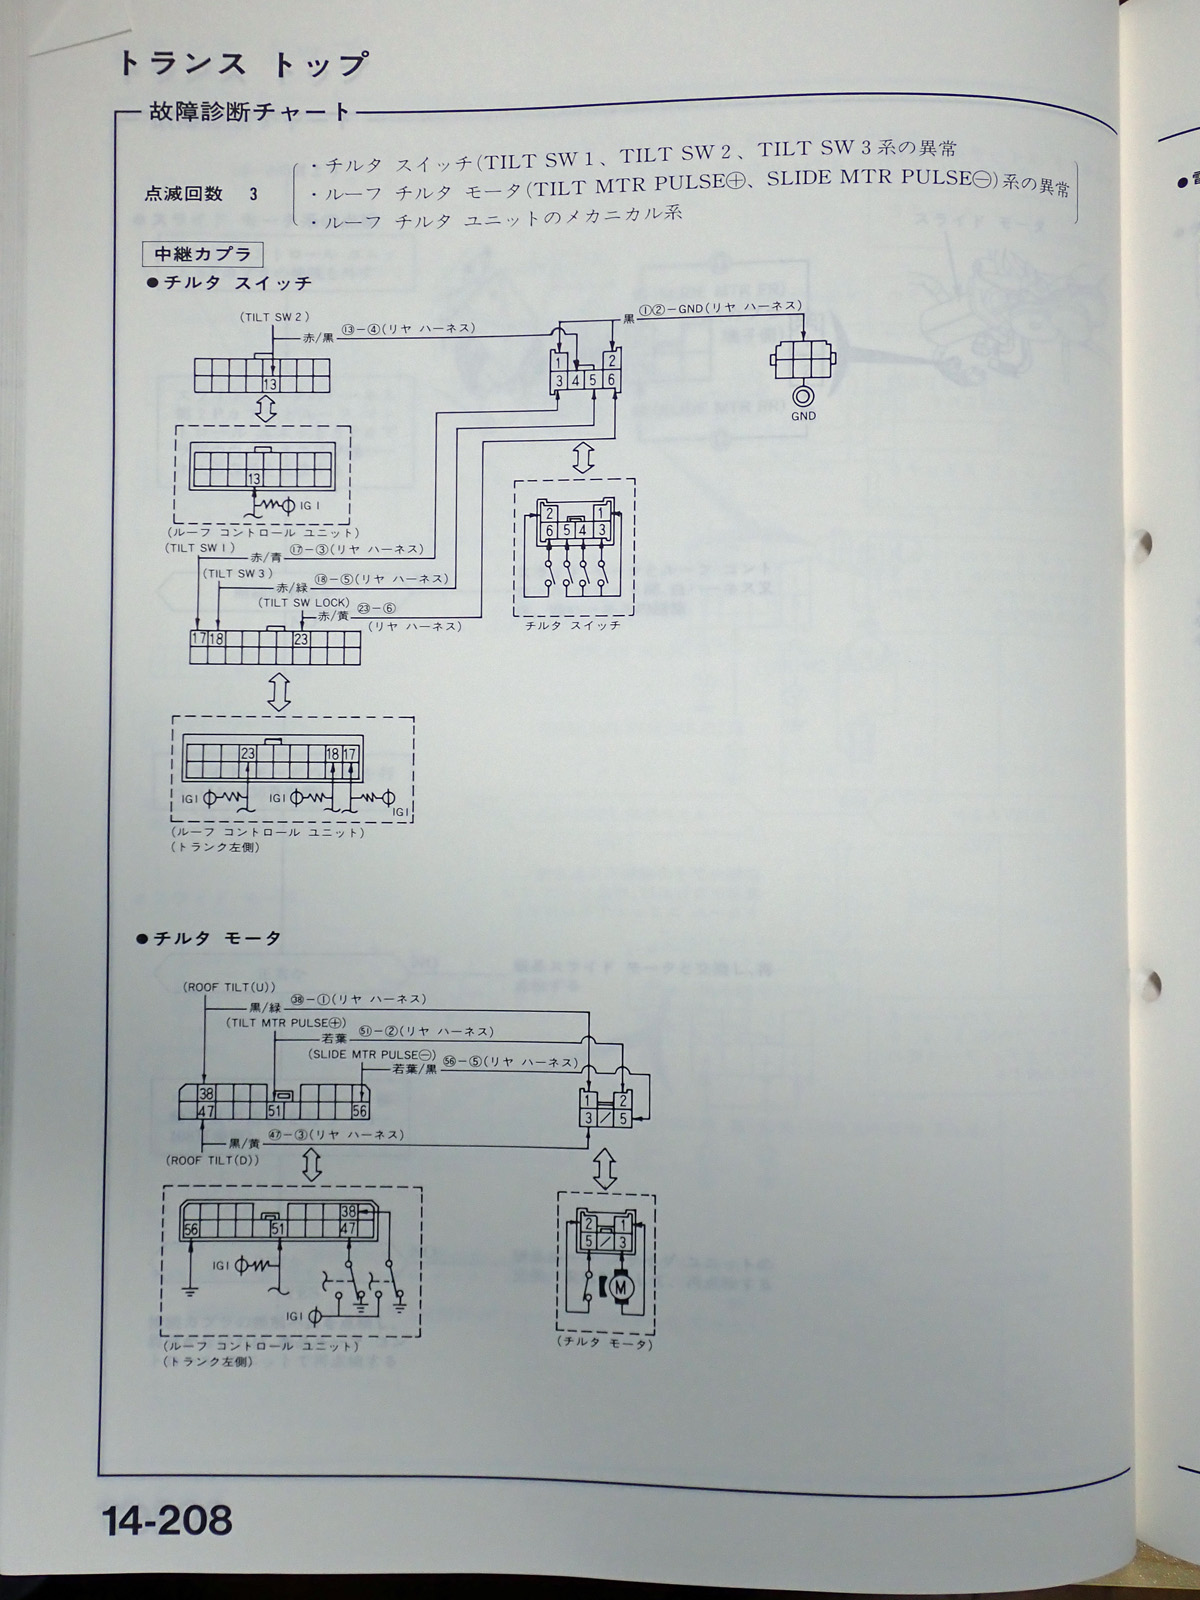 トランス トップ
故障診断チャート
点滅回数 3
・チルタ スイッチ(TILT SW1、TILT SW2、TILT SW3系の異常
・ルーフ チルタ モータ(TILT MTR PULSE⊕、SLIDE MTR PULSE⊖)系の異常
・ルーフ チルタ ユニットのメカニカル系
中継カプラ
●チルタ スイッチ
(TILT SW2)
赤/黒 ⑬-④(リヤ ハーネス)
黒 ①②-GND(リヤ ハーネス)
13
1 2
3 4 5 6
GND
13
IG1
(ルーフ コントロール ユニット)
(TILT SW1)
赤/青 ⑰-③(リヤ ハーネス)
(TILT SW3)
赤/緑 ⑱-⑤(リヤ ハーネス)
(TILT SW LOCK)
赤/黄 ㉓-⑥
(リヤ ハーネス)
2 1
6 5 4 3
チルタ スイッチ
17 18 23
23 18 17
IG1 IG1 IG1
(ルーフ コントロール ユニット)
(トランク左側)
●チルタ モータ
(ROOF TILT(U))
黒/緑 ㊳-①(リヤ ハーネス)
(TILT MTR PULSE⊕)
若葉 51-②(リヤ ハーネス)
(SLIDE MTR PULSE⊖)
若葉/黒 56-⑤(リヤ ハーネス)
38
47 51 56
1 2
3 / 5
黒/黄 ㊼-③(リヤ ハーネス)
(ROOF TILT(D))
38
56 51 47
IG1
IG1
2 1
5 / 3
M
(ルーフ コントロール ユニット)
(トランク左側)
(チルタ モータ)
14-208